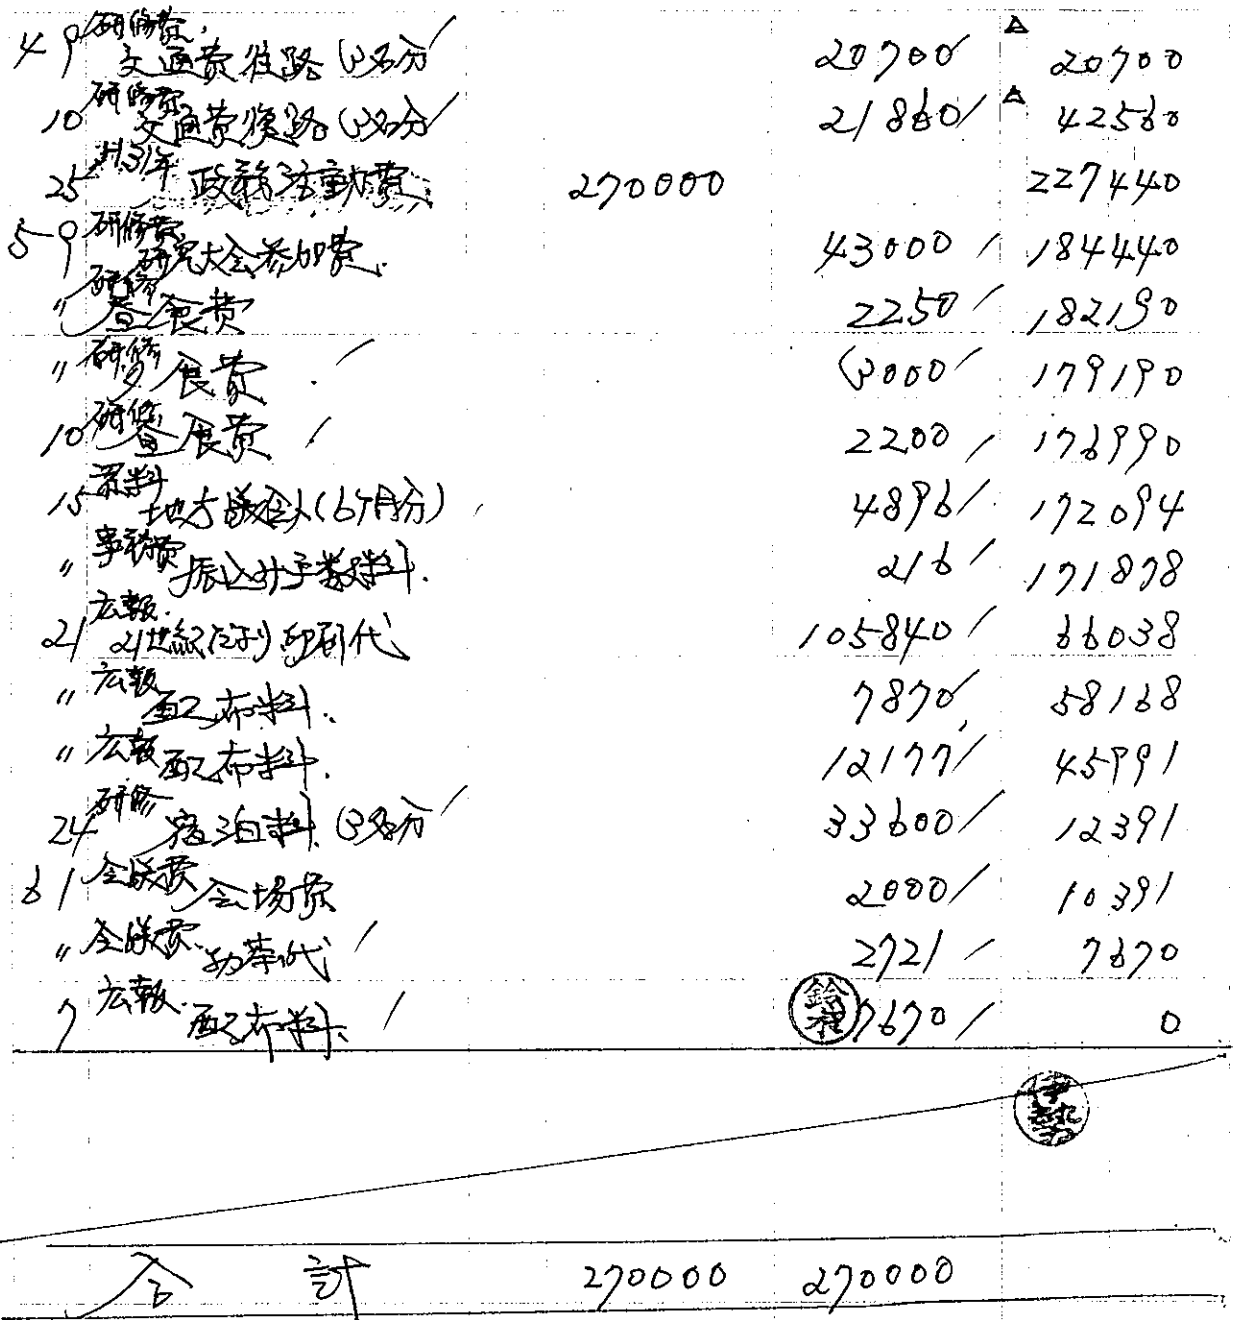 研修費
4 9 交通費往路(3名分) 20700 △ 20700
研修費
10 交通費復路(3名分) 21860 △ 42560
H31年
25 政務活動費 270000 227440
研修費
5 9 研究大会参加費 43000 184440
研修
〃 昼食費 2250 182190
研修
〃 夕食費 3000 179190
研修
10 昼食費 2200 176990
資料
15 地方議会人(6ヶ月分) 4896 172094
事務費
〃 振込み手数料 216 171878
広報
21 21世紀 印刷代 105840 66038
広報
〃 配布料 7870 58168
広報
〃 配布料 12177 45991
研修
24 宿泊料(3名分) 33600 12391
会議費
6 1 会場費 2000 10391
会議費
〃 お茶代 2721 7670
広報
7 配布料 鈴木 7670 0
伊勢
合計 270000 270000